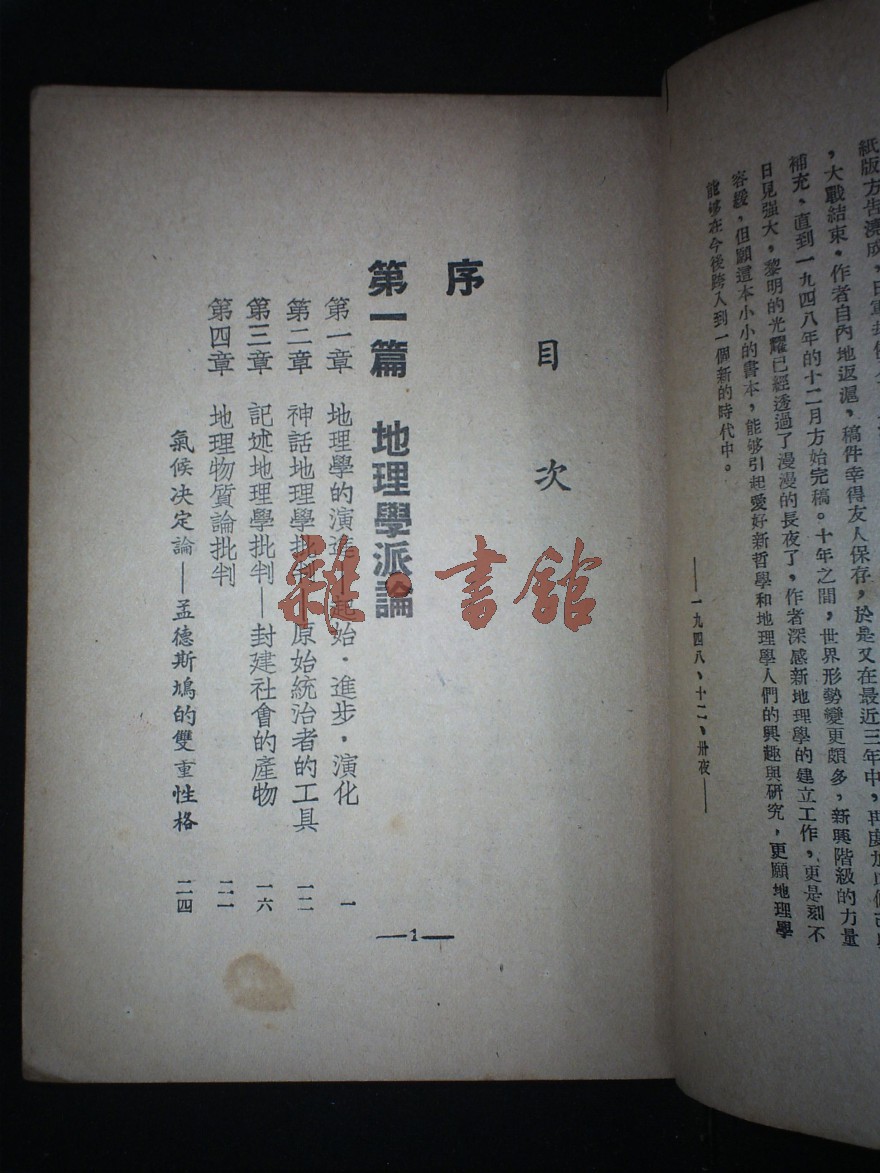 紙版方告澆成，
，大戰結束。作者自內地返滬，稿件幸得友人保存，於是又在最近三年中，再度加以修改與
補充、直到一九四八年的十二月方始完稿。十年之間，世界形勢變更頗多，新興階級的力量
日見强大，黎明的光耀已經透過了漫漫的長夜了，作者深感新地理學的建立工作，更是刻不
容緩，但願這本小小的書本，能够引起愛好新哲學和地理學人們的興趣與研究，更願地理學
能够在今後跨入到一個新的時代中。
——一九四八、十二、卅夜——
目次
序
第一篇 地理學派論
第一章 地理學的演進—起始．進步，演化 一
第二章 神話地理學批判—原始統治者的工具 一二
第三章 記述地理學批判—封建社會的產物 一六
第四章 地理物質論批判 二一
氣候决定論—孟德斯鳩的雙重性格 二四
—1—
雜·書館